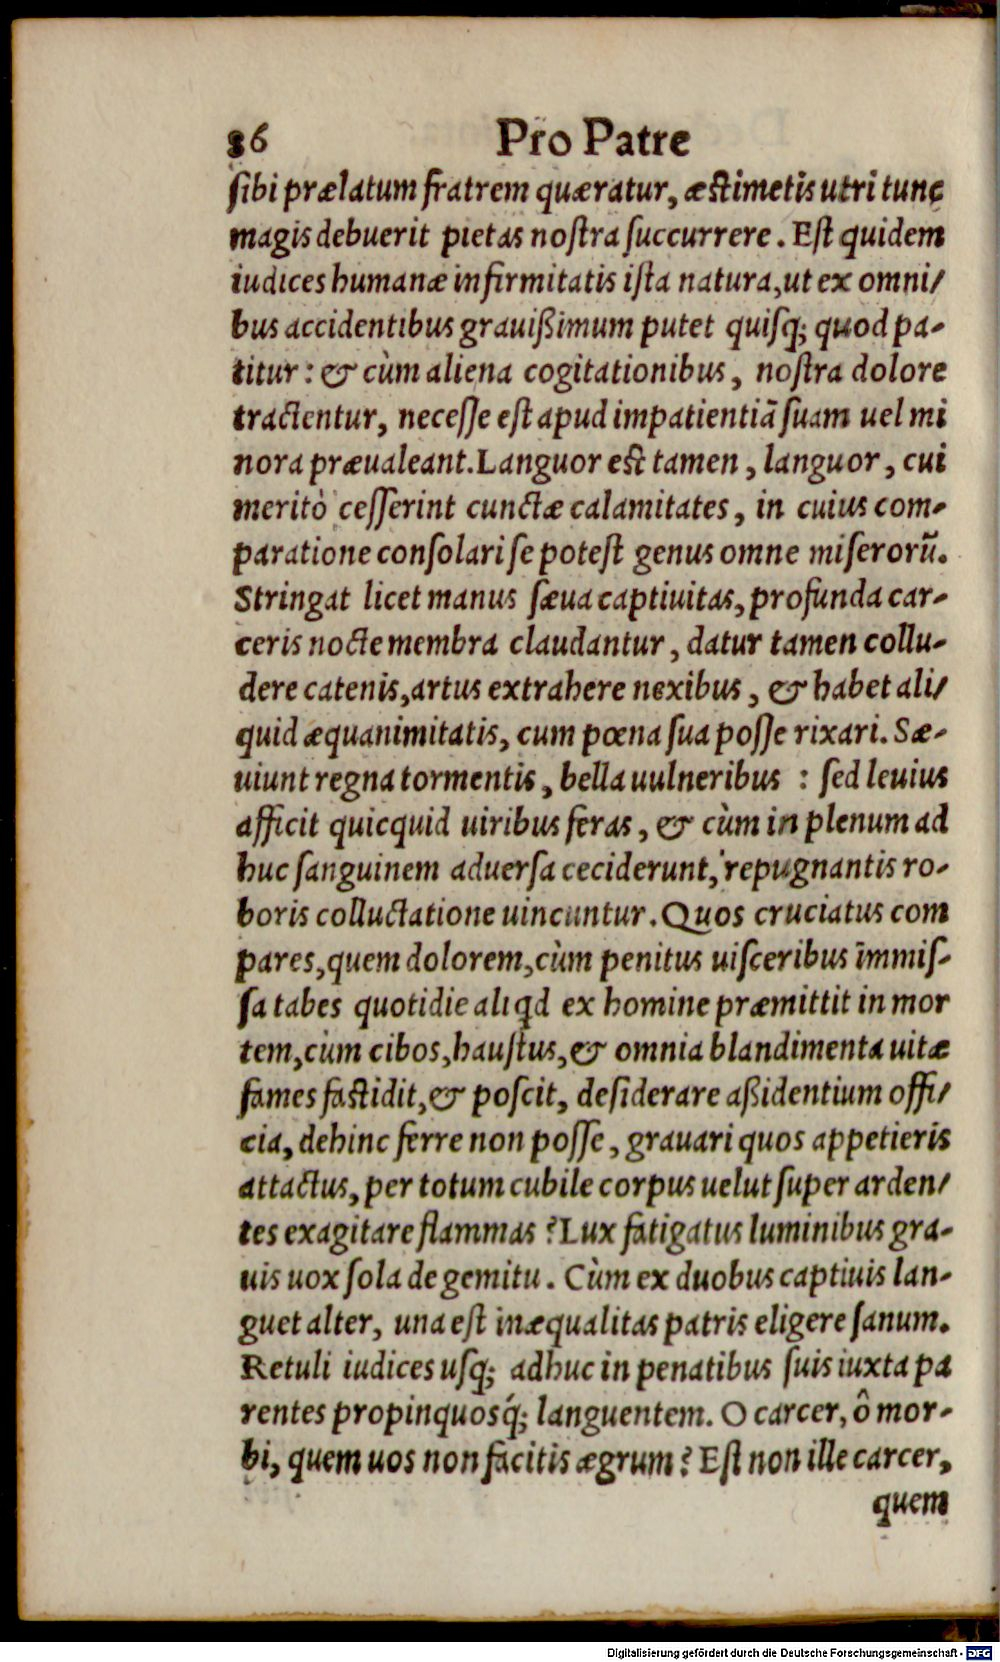 86 Pro Patre
ſibi prælatum fratrem quæratur, æſtimetis utri tunc
magis debuerit pietas noſtra ſuccurrere. Eſt quidem
iudices humanæ infirmitatis iſta natura, ut ex omni/
bus accidentibus grauißimum putet quiſq; quod pa-
titur: & cùm aliena cogitationibus, noſtra dolore
tractentur, neceſſe eſt apud impatientiā ſuam uel mi
nora præualeant. Languor eſt tamen, languor, cui
meritò ceſſerint cunctæ calamitates, in cuius com-
paratione conſolari ſe poteſt genus omne miſerorū.
Stringat licet manus ſæua captiuitas, profunda car-
ceris nocte membra claudantur, datur tamen collu-
dere catenis, artus extrahere nexibus, & habet ali/
quid æquanimitatis, cum pœna ſua poſſe rixari. Sæ-
uiunt regna tormentis, bella uulneribus : ſed leuius
afficit quicquid uiribus feras, & cùm in plenum ad
huc ſanguinem aduerſa ceciderunt, repugnantis ro-
boris colluctatione uincuntur. Quos cruciatus com
pares, quem dolorem, cùm penitus uiſceribus immiſ-
ſa tabes quotidie aliqd ex homine præmittit in mor
tem, cùm cibos, hauſtus, & omnia blandimenta uitæ
fames faſtidit, & poſcit, deſiderare aßidentium offi/
cia, dehinc ferre non poſſe, grauari quos appetieris
attactus, per totum cubile corpus uelut ſuper arden/
tes exagitare flammas? Lux fatigatus luminibus gra-
uis uox ſola de gemitu. Cùm ex duobus captiuis lan-
guet alter, una eſt inæqualitas patris eligere ſanum.
Retuli iudices uſq; adhuc in penatibus ſuis iuxta pa
rentes propinquosq́; languentem. O carcer, ô mor-
bi, quem uos non facitis ægrum? Eſt non ille carcer,
quem
Digitalisierung gefördert durch die Deutsche Forschungsgemeinschaft - DFG